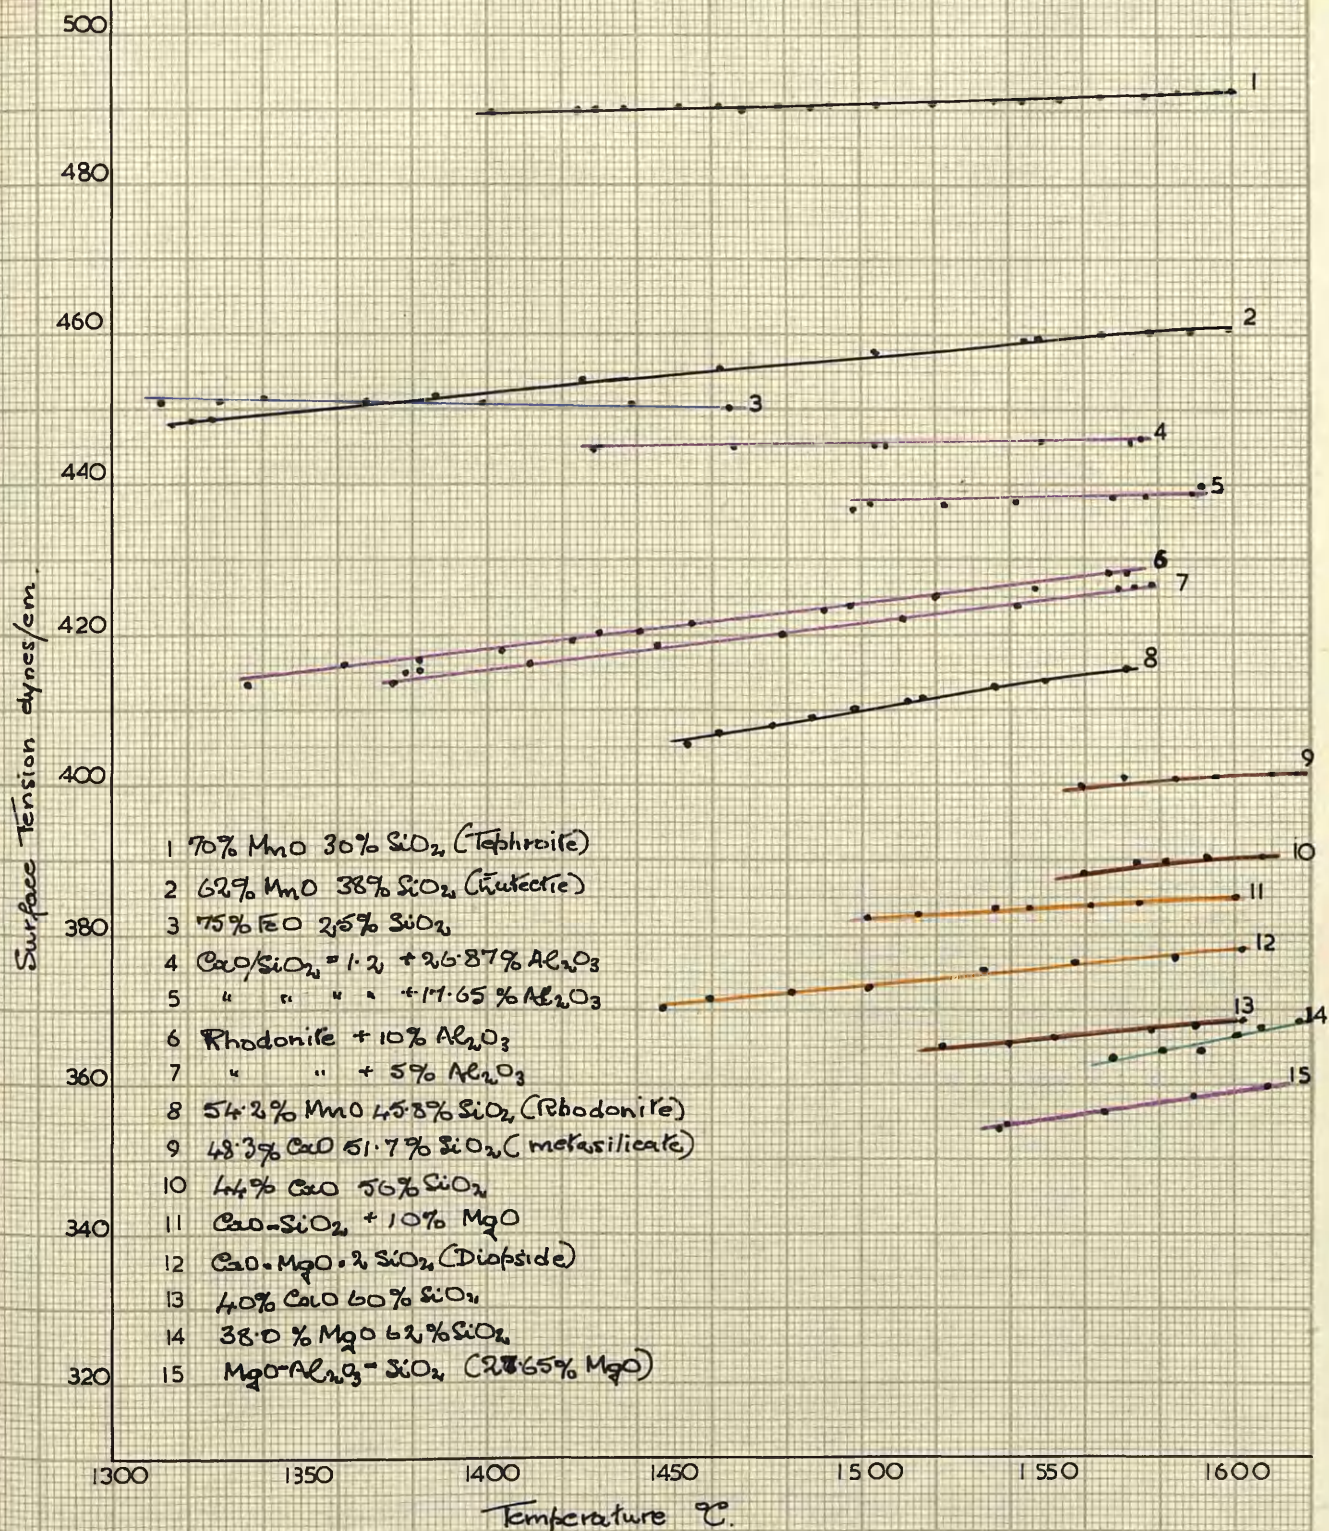 500
1
480
460
2
3
4
440
5
6
7
420
8
400
9
10
11
380
12
13
14
360
15
340
320
Surface Tension dynes/cm.
1 70% MnO 30% SiO₂ (Tephroite)
2 62% MnO 38% SiO₂ (Eutectic)
3 75% FeO 25% SiO₂
4 CaO/SiO₂ = 1.2 + 26.87% Al₂O₃
5 " " " " + 17.65 % Al₂O₃
6 Rhodonite + 10% Al₂O₃
7 " " + 5% Al₂O₃
8 54.2% MnO 45.8% SiO₂ (Rhodonite)
9 48.3% CaO 51.7% SiO₂ (metasilicate)
10 44% CaO 56% SiO₂
11 CaO-SiO₂ + 10% MgO
12 CaO.MgO.2 SiO₂ (Diopside)
13 40% CaO 60% SiO₂
14 38.0 % MgO 62% SiO₂
15 MgO-Al₂O₃-SiO₂ MgO)
1300 1350 1400 1450 1500 1550 1600
Temperature °C.